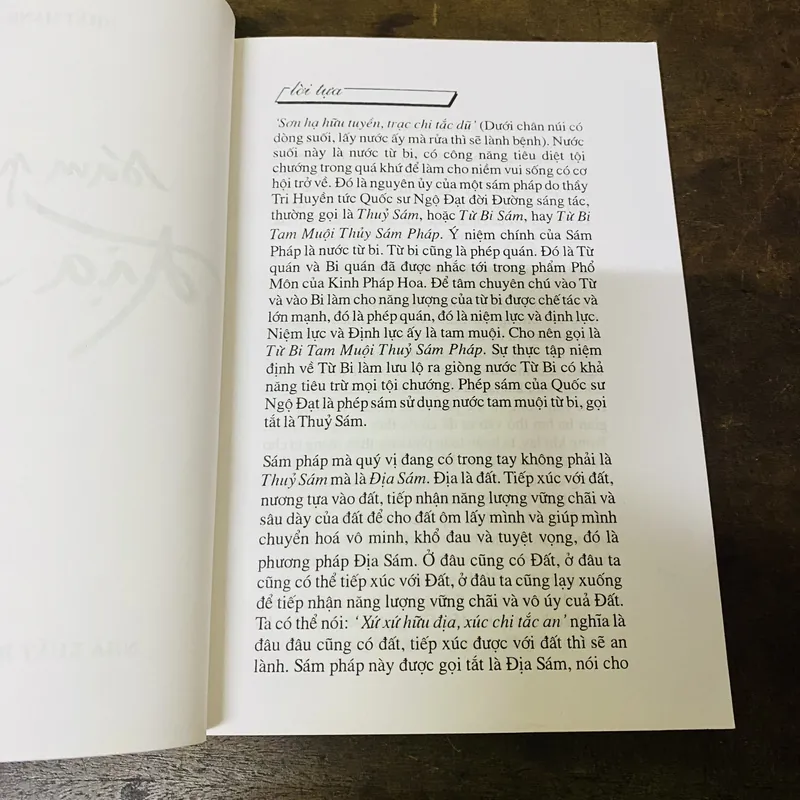 lời tựa
'Sơn hạ hữu tuyền, trạc chi tắc dũ' (Dưới chân núi có
dòng suối, lấy nước ấy mà rửa thì sẽ lành bệnh). Nước
suối này là nước từ bi, có công năng tiêu diệt tội
chướng trong quá khứ để làm cho niềm vui sống có cơ
hội trở về. Đó là nguyên ủy của một sám pháp do thầy
Tri Huyền tức Quốc sư Ngộ Đạt đời Đường sáng tác,
thường gọi là Thuỷ Sám, hoặc Từ Bi Sám, hay Từ Bi
Tam Muội Thủy Sám Pháp. Ý niệm chính của Sám
Pháp là nước từ bi. Từ bi cũng là phép quán. Đó là Từ
quán và Bi quán đã được nhắc tới trong phẩm Phổ
Môn của Kinh Pháp Hoa. Để tâm chuyên chú vào Từ
và vào Bi làm cho năng lượng của từ bi được chế tác và
lớn mạnh, đó là phép quán, đó là niệm lực và định lực.
Niệm lực và Định lực ấy là tam muội. Cho nên gọi là
Từ Bi Tam Muội Thuỷ Sám Pháp. Sự thực tập niệm
định về Từ Bi làm lưu lộ ra giòng nước Từ Bi có khả
năng tiêu trừ mọi tội chướng. Phép sám của Quốc sư
Ngộ Đạt là phép sám sử dụng nước tam muội từ bi, gọi
tắt là Thuỷ Sám.
Sám pháp mà quý vị đang có trong tay không phải là
Thuỷ Sám mà là Địa Sám. Địa là đất. Tiếp xúc với đất,
nương tựa vào đất, tiếp nhận năng lượng vững chãi và
sâu dày của đất để cho đất ôm lấy mình và giúp mình
chuyển hoá vô minh, khổ đau và tuyệt vọng, đó là
phương pháp Địa Sám. Ở đâu cũng có Đất, ở đâu ta
cũng có thể tiếp xúc với Đất, ở đâu ta cũng lạy xuống
để tiếp nhận năng lượng vững chãi và vô úy cuả Đất.
Ta có thể nói: 'Xứ xứ hữu địa, xúc chi tắc an' nghĩa là
đâu đâu cũng có đất, tiếp xúc được với đất thì sẽ an
lành. Sám pháp này được gọi tắt là Địa Sám, nói cho